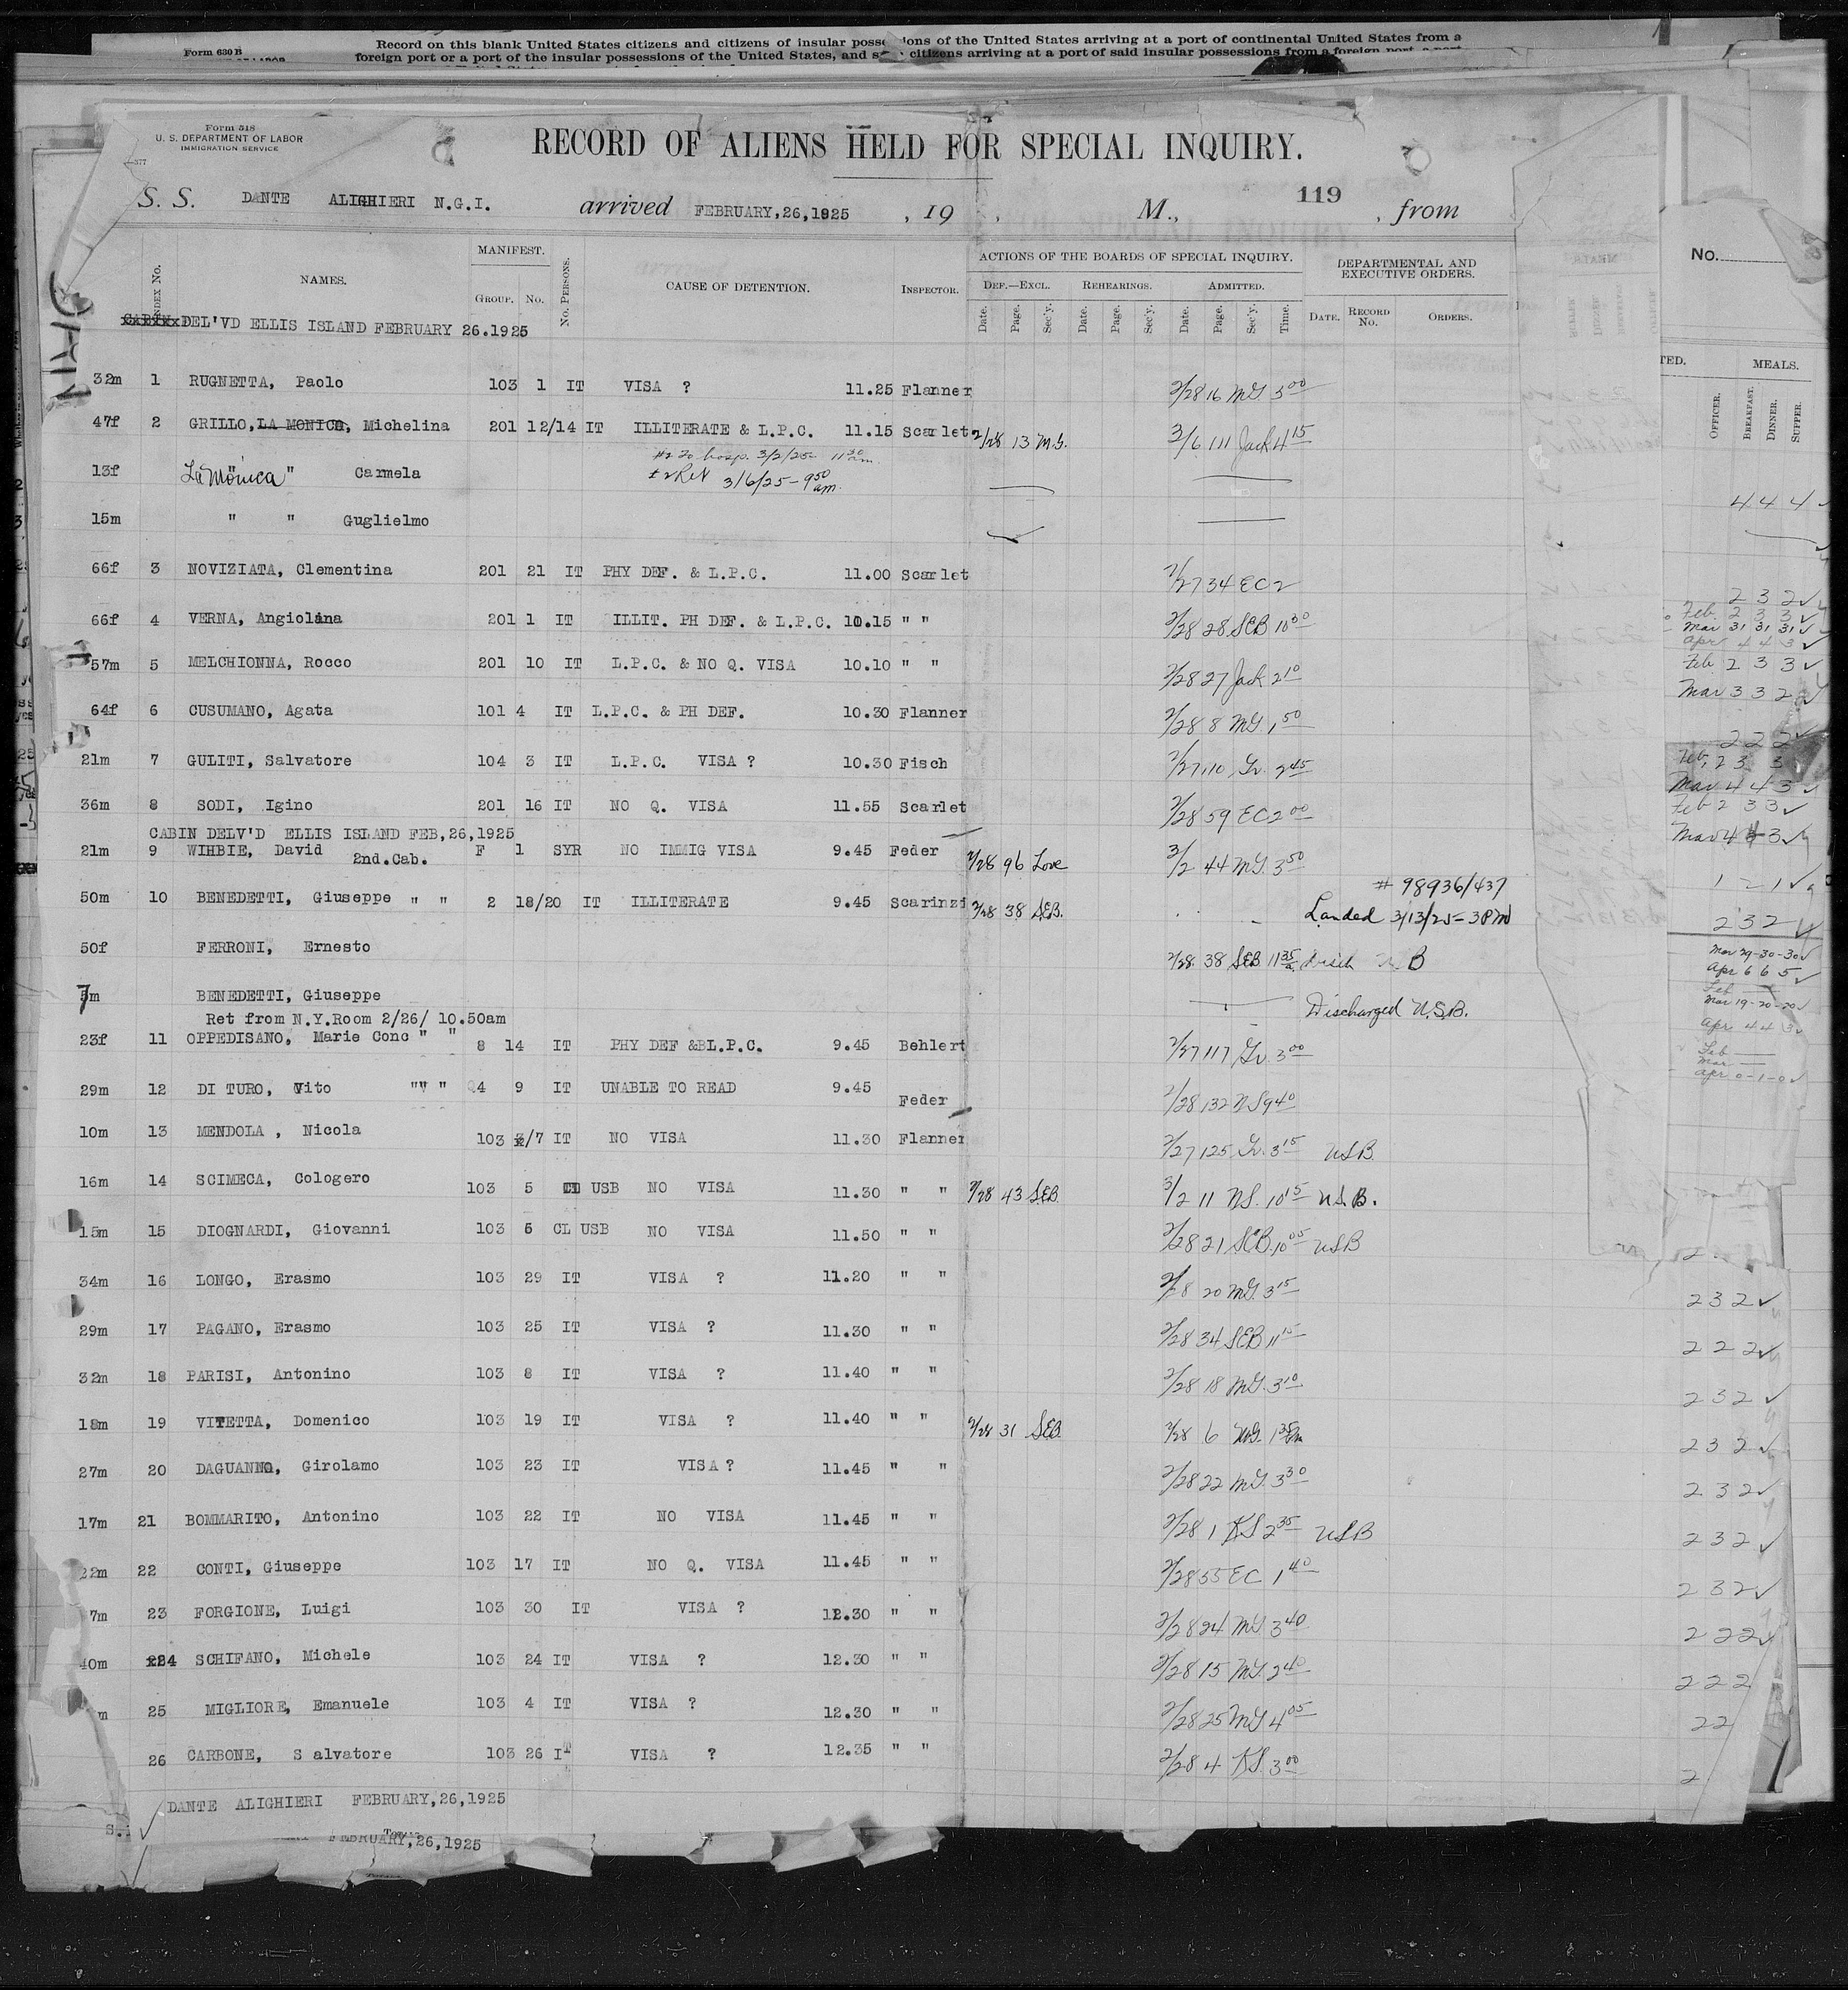 Form 630 B
Record on this blank United States citizens and citizens of insular possessions of the United States arriving at a port of continental United States from a
foreign port or a port of the insular possessions of the United States, and citizens arriving at a port of said insular possessions from a foreign port
Form 518
U. S. DEPARTMENT OF LABOR
IMMIGRATION SERVICE
RECORD OF ALIENS HELD FOR SPECIAL INQUIRY.
S. S. DANTE ALIGHIERI N.G.I. arrived FEBRUARY,26,1925 , 19 , M., 119 , from
No.
INDEX No. NAMES. MANIFEST. GROUP. No. No. PERSONS. CAUSE OF DETENTION. INSPECTOR. ACTIONS OF THE BOARDS OF SPECIAL INQUIRY. DEF.—EXCL. Date. Page. Sec'y. REHEARINGS. Date. Page. Sec'y. ADMITTED. Date. Page. Sec'y. Time. DEPARTMENTAL AND EXECUTIVE ORDERS. DATE. RECORD No. ORDERS.
MEALS. OFFICER. BREAKFAST. DINNER. SUPPER.
DEL'VD ELLIS ISLAND FEBRUARY 26.1925
32m 1 RUGNETTA, Paolo 103 1 IT VISA ? 11.25 Flanner 2/28 16 MG 5 00
47f 2 GRILLO, LA MONICA, Michelina 201 12/14 IT ILLITERATE & L.P.C. 11.15 Scarlet 2/28 13 M.G. 3/6 111 Jack 4 15
#2 To hosp. 3/2/25 11 30 am.
13f La Monica " Carmela 3/6/25 - 9 50 am.
15m " " Guglielmo 4 4 4
66f 3 NOVIZIATA, Clementina 201 21 IT PHY DEF. & L.P.C. 11.00 Scarlet 2/27 34 EC 2
66f 4 VERNA, Angiolina 201 1 IT ILLIT. PH DEF. & L.P.C. 10.15 " " 2/28 28 SEB 10 30
57m 5 MELCHIONNA, Rocco 201 10 IT L.P.C. & NO Q. VISA 10.10 " " 2/28 27 Jack 2 10
64f 6 CUSUMANO, Agata 101 4 IT L.P.C. & PH DEF. 10.30 Flanner 2/28 8 MG 1 50
21m 7 GULITI, Salvatore 104 3 IT L.P.C. VISA ? 10.30 Fisch 2/27 110 Gv. 2 45
36m 8 SODI, Igino 201 16 IT NO Q. VISA 11.55 Scarlet 2/28 59 EC 2 00
CABIN DELV'D ELLIS ISLAND FEB,26,1925
21m 9 WIHBIE, David 2nd.Cab. F 1 SYR NO IMMIG VISA 9.45 Feder 2/28 96 Love 3/2 44 MG. 3 50
# 98936/437
50m 10 BENEDETTI, Giuseppe " " 2 18/20 IT ILLITERATE 9.45 Scarinzi 2/28 38 SEB. Landed 3/13/25 - 3PM
50f FERRONI, Ernesto 2/28 38 SEB 11 35 Disch B
7m BENEDETTI, Giuseppe Discharged U.S.B.
Ret from N.Y.Room 2/26/ 10.50am
23f 11 OPPEDISANO, Marie Conc " " 8 14 IT PHY DEF &L.P.C. 9.45 Behlert 2/27 117 Gv. 3 00
29m 12 DI TURO, Vito "" " 4 9 IT UNABLE TO READ 9.45 Feder 2/28 132 NS 9 40
10m 13 MENDOLA , Nicola 103 /7 IT NO VISA 11.30 Flanner 2/27 125 Gv. 3 15 USB
16m 14 SCIMECA, Cologero 103 5 USB NO VISA 11.30 " " 2/28 43 SEB 3/2 11 NS. 10 15 U.S.B.
15m 15 DIOGNARDI, Giovanni 103 6 CL USB NO VISA 11.50 " " 2/28 21 SEB. 10 05 USB
34m 16 LONGO, Erasmo 103 29 IT VISA ? 11.20 " " 2/28 20 MG. 3 15 2 3 2
29m 17 PAGANO, Erasmo 103 25 IT VISA ? 11.30 " " 2/28 34 SEB 11 15 2 2 2
32m 18 PARISI, Antonino 103 8 IT VISA ? 11.40 " " 2/28 18 MG. 3 10 2 3 2
18m 19 VITETTA, Domenico 103 19 IT VISA ? 11.40 " " 2/28 31 SEB. 2/28 6 MG. 1 35 2 3 2
27m 20 DAGUANNO, Girolamo 103 23 IT VISA ? 11.45 " " 2/28 22 MG. 3 30 2 3 2
17m 21 BOMMARITO, Antonino 103 22 IT NO VISA 11.45 " " 2/28 1 KS 2 35 USB 2 3 2
22m 22 CONTI, Giuseppe 103 17 IT NO Q. VISA 11.45 " " 2/28 55 EC 1 40 2 3 2
7m 23 FORGIONE, Luigi 103 30 IT VISA ? 12.30 " " 2/28 24 MG 3 40 2 2 2
40m 24 SCHIFANO, Michele 103 24 IT VISA ? 12.30 " " 2/28 15 MG. 2 40 2 2 2
m 25 MIGLIORE, Emanuele 103 4 IT VISA ? 12.30 " " 2/28 25 MG 4 05 2 2
26 CARBONE, Salvatore 103 26 IT VISA ? 12.35 " " 2/28 4 KS. 3 00 2
DANTE ALIGHIERI FEBRUARY,26,1925
FEBRUARY,26,1925